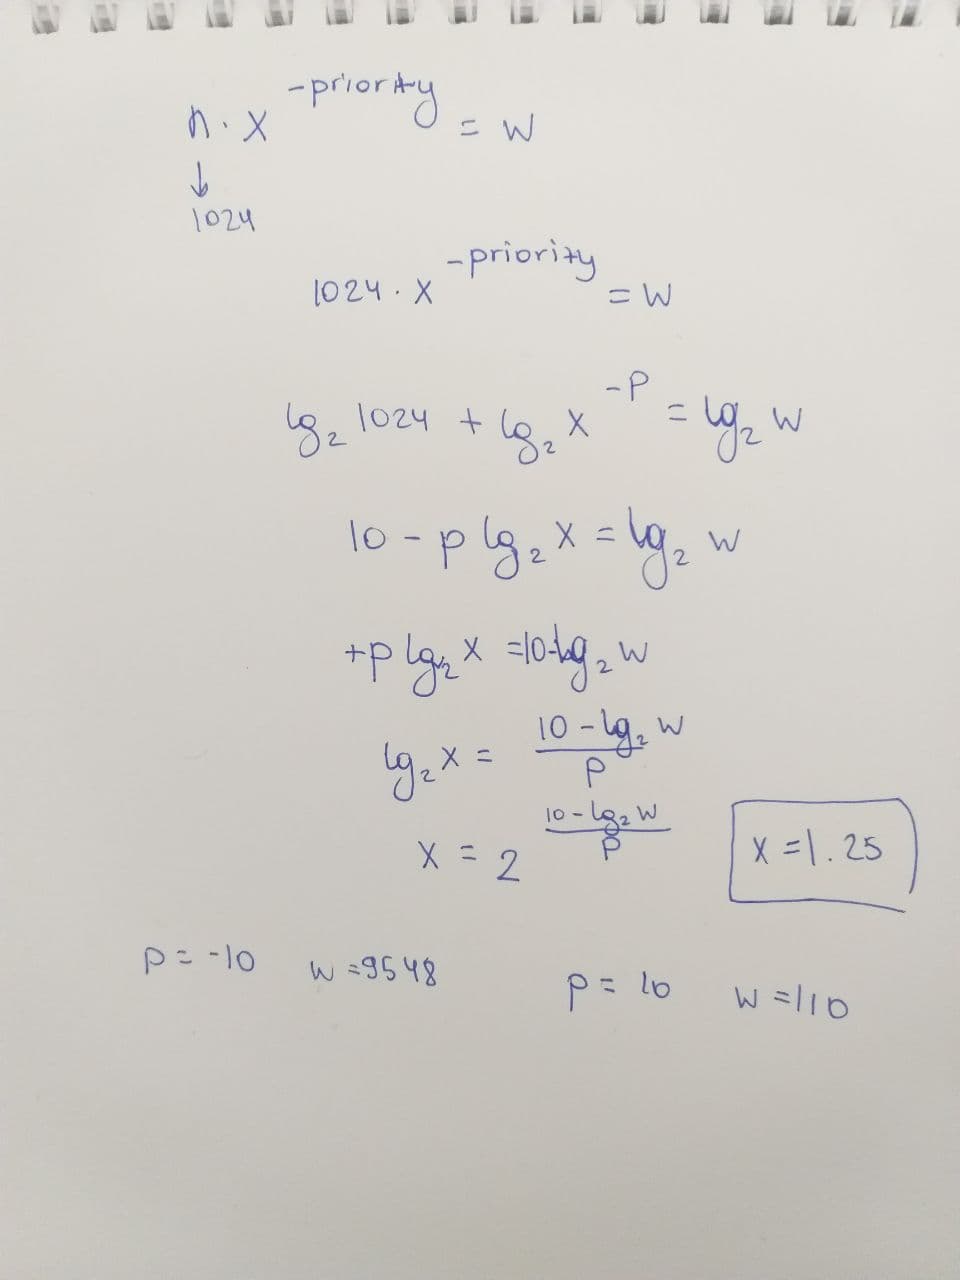 n · x^-priority = w
↓
1024
1024 · x^-priority = w
lg₂ 1024 + lg₂ x^-p = lg₂ w
10 - p lg₂ x = lg₂ w
+p lg₂ x = 10 - lg₂ w
lg₂ x = (10 - lg₂ w)/p
x = 2^((10 - lg₂ w)/p)
x = 1.25
p = -10 w = 9548 p = 10 w = 110